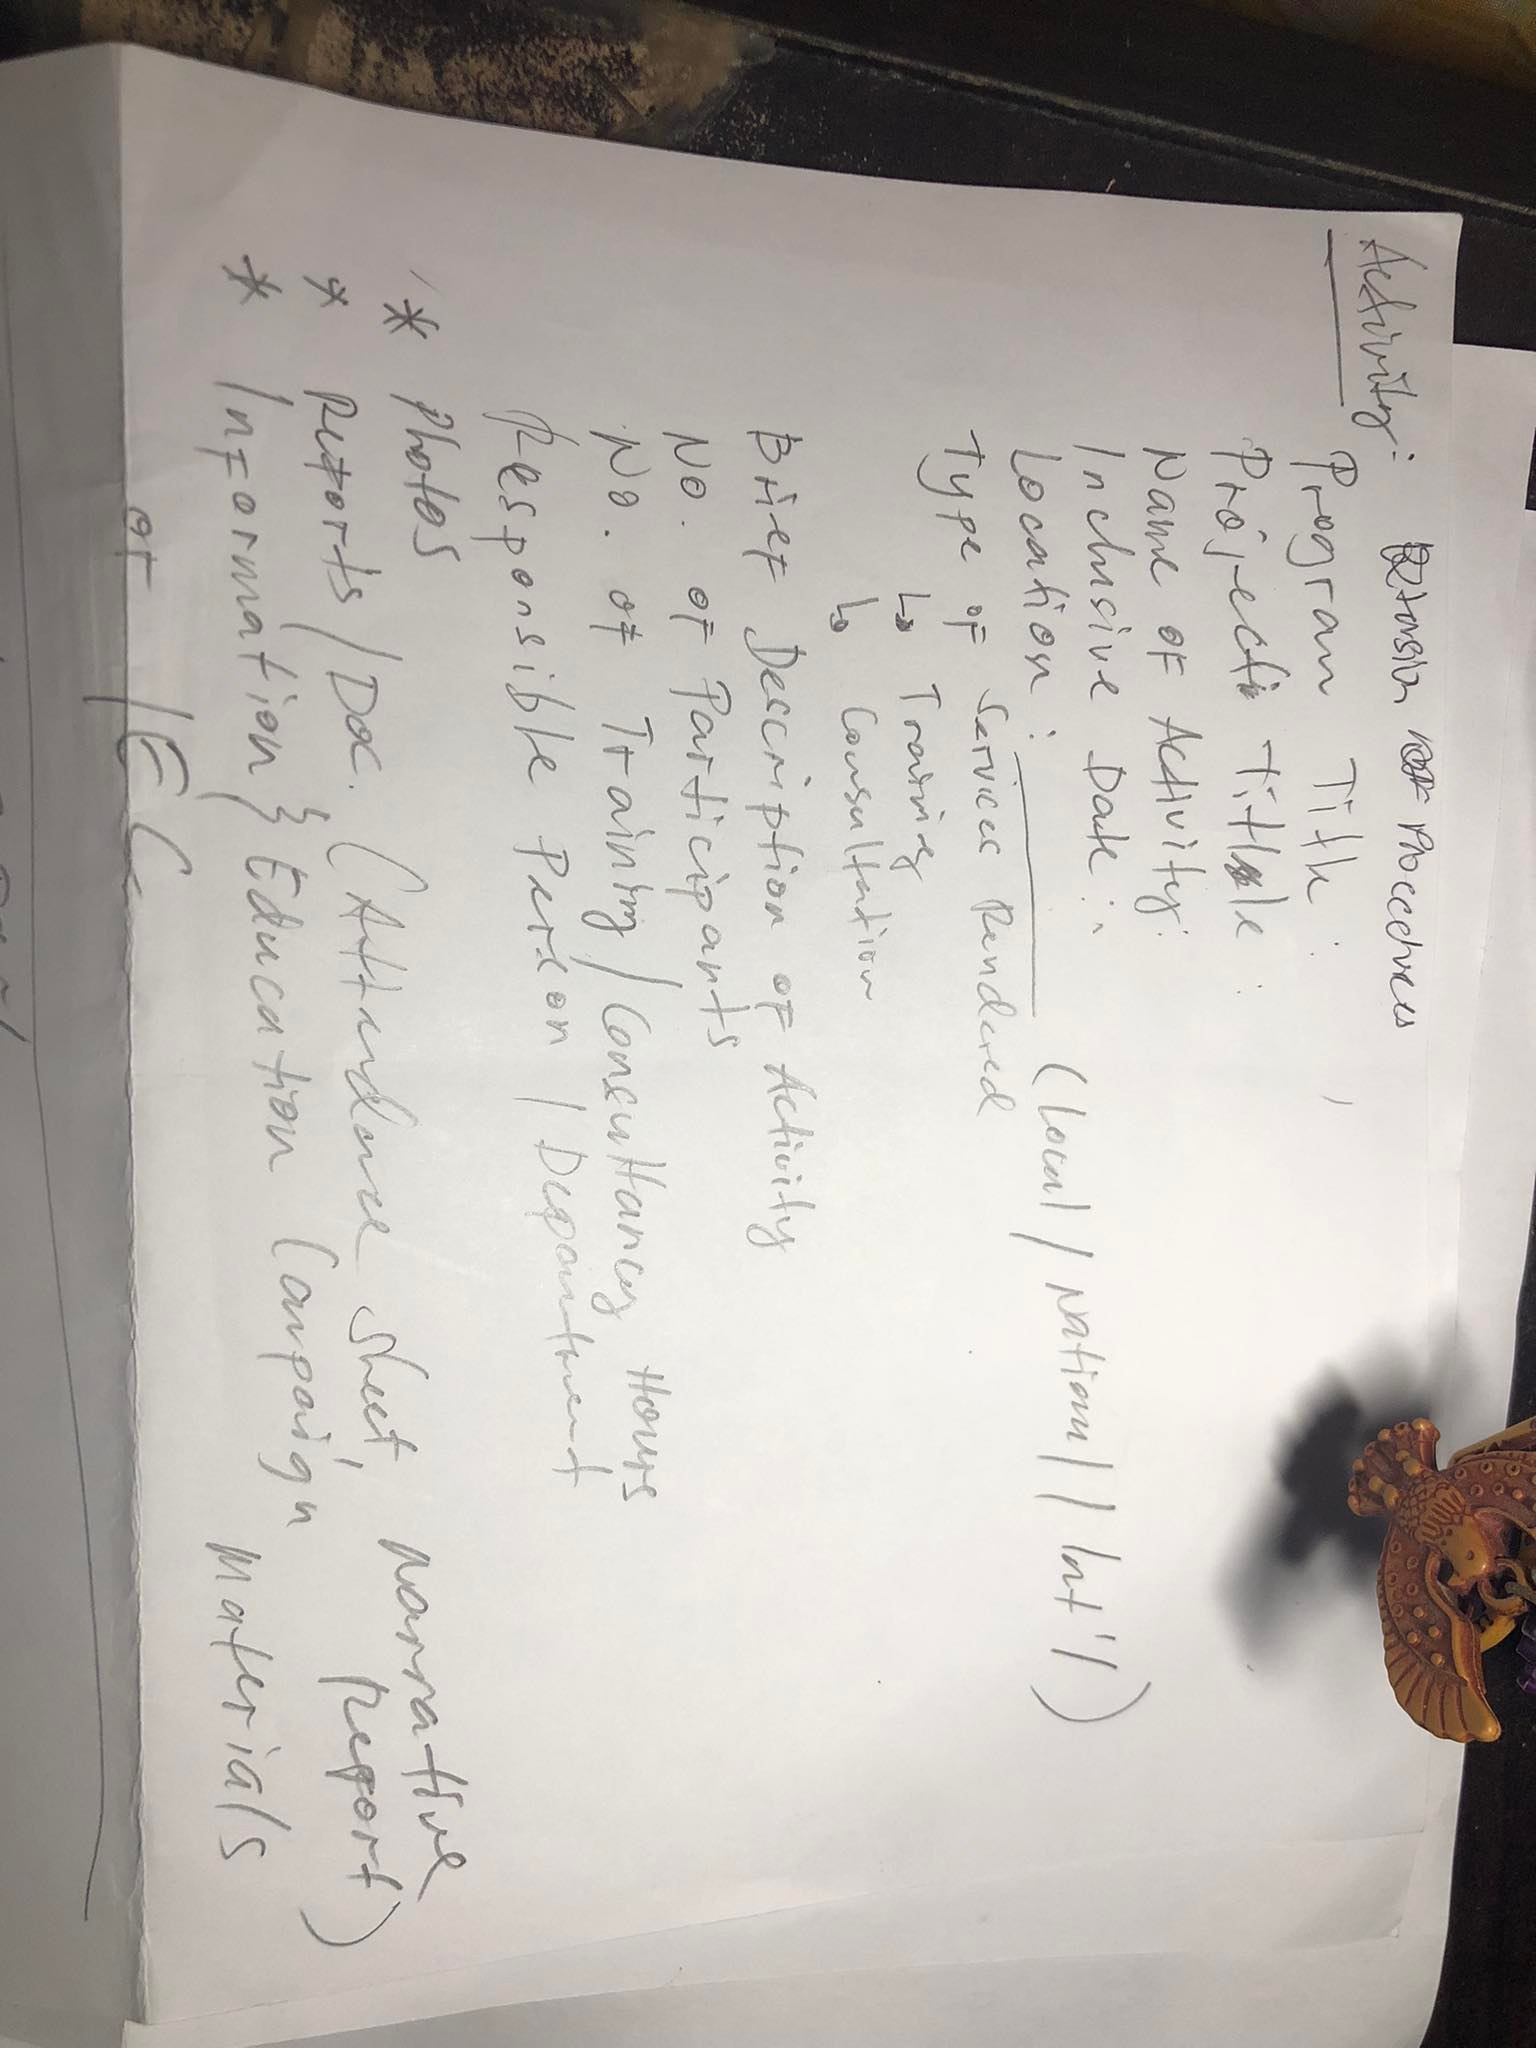 Activity: Extension Procedures
Program Title :
Project Title :
Name of Activity:
Inclusive Date :
Location : ________ (Local / National / Int'l)
Type of Services Rendered
↳ Training
↳ Consultation
Brief Description of Activity
No. of Participants
No. of Training / Consultancy Hours
Responsible Person / Department
* Photos
* Reports / Doc. (Attendance Sheet, Narrative Report)
* Information } Education Campaign Materials
or IEC